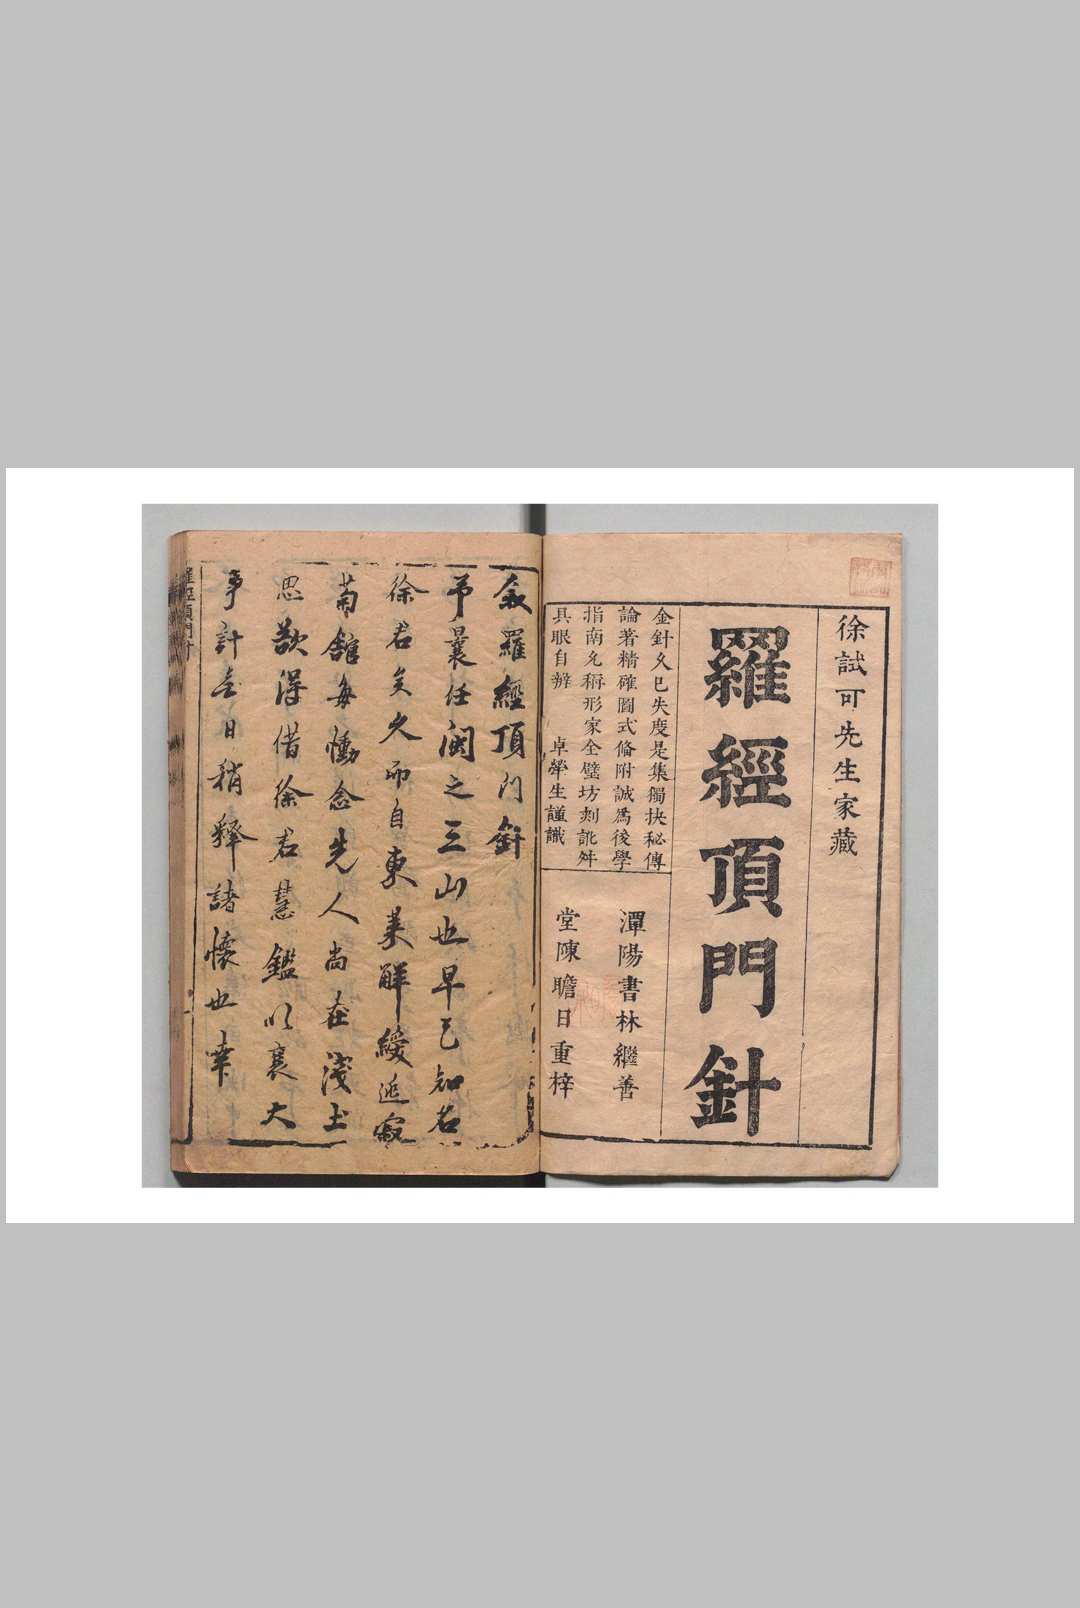 徐試可先生家藏
羅經頂門針
金針久已失度是集獨抉秘傳
論著精確圖式俻附誠爲後學
指南允稱形家全璧坊刻訛舛
具眼自辨 卓犖生謹識
潭陽書林繼善
堂陳瞻日重梓
敘羅經頂门針
予曩任閩之三山也早已知有
徐君矣久而自東莱解綬逃寂
菊舘每慟念先人尚在淺土
思欲得借徐君慧鑑以襄大
事計无日稍釋諸懷也幸
羅經頂門針